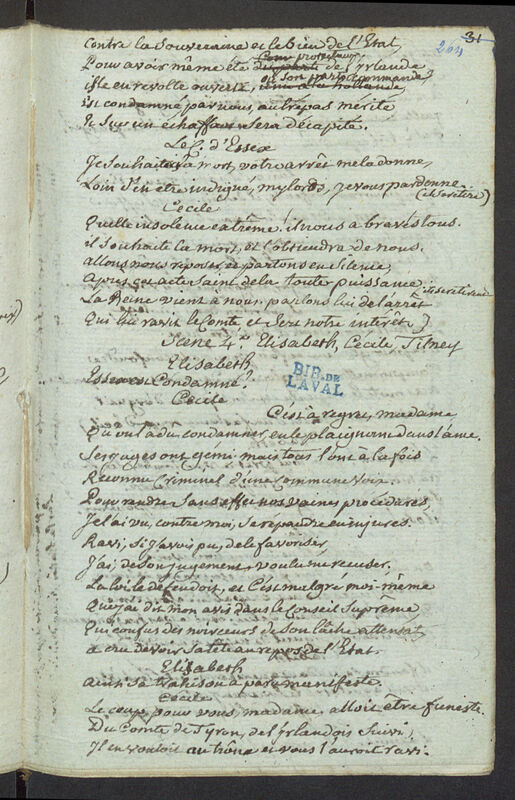 31
204
Contre la Souveraine et le bien de l'Etat,
Pour avoir même été Com protecteur de l'Yrlande
isle en revolte ouverte, où son parti commande,
Est condamné par nous, autre pas merite
Et Sur un échaffaut Sera décapité.
Le C. d'Essex
Je Souhaitois la mort, votre arrêt me la donne,
Loin d'en être indigné, mylords, je vous pardonne.
(il se retire)
Cecile
Quelle insolence extrême! il nous a bravés tous.
il Souhaite la mort, et l'obtiendra de nous.
allons nous reposer, et partons en Silence,
Après cet acte Saint de la toute puissance.
La Reine vient à nous. parlons lui de l'arrêt
Qui lui ravit le Comte et Sert notre interêt.
Scene 4.e Elisabeth, Cecile, Tilney
Elisabeth
Essex est Condamné?
Cecile
C'est à regret, madame
Qu'on l'a du condamner en le plaignant dans l'ame.
Ses juges ont gemi mais tous l'ont à la fois
Reconnu Criminel d'une commune voix.
Pour rendre Sans effet nos vaines procédures,
Je l'ai vu, contre moi, Se repandre en injures.
Ravi, Si j'avois pu, de le favoriser,
J'ai, de Son jugement, voulu me recuser.
La loi le defendoit, et C'est malgré moi-même
Que j'ai dit mon avis dans le Conseil Suprême,
Qui confus des noirceurs de Son lâche attentat
a cru devoir Sa tête au repos de l'Etat.
Elisabeth
ainsi Sa trahison a paru manifeste.
Cecile
Le coup, pour vous, madame, alloit être funeste.
Du Comte de Tyron, de l'yrlandois Suivi,
Il en vouloit au trône et vous l'auroit ravi.
BIB. DE
LAVAL